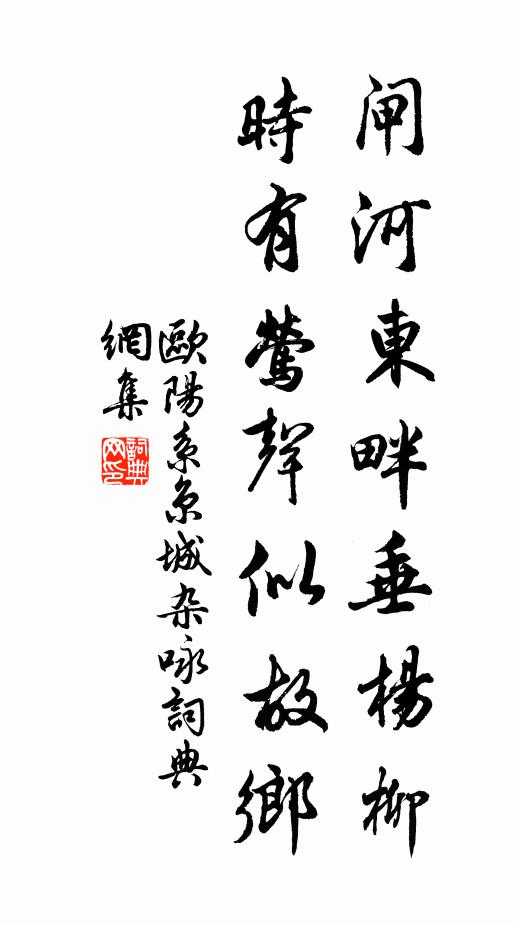 閘河東畔垂楊柳
時有鶯聲似故鄉
歐陽系京城杂咏詞典
網集
詞典
网印